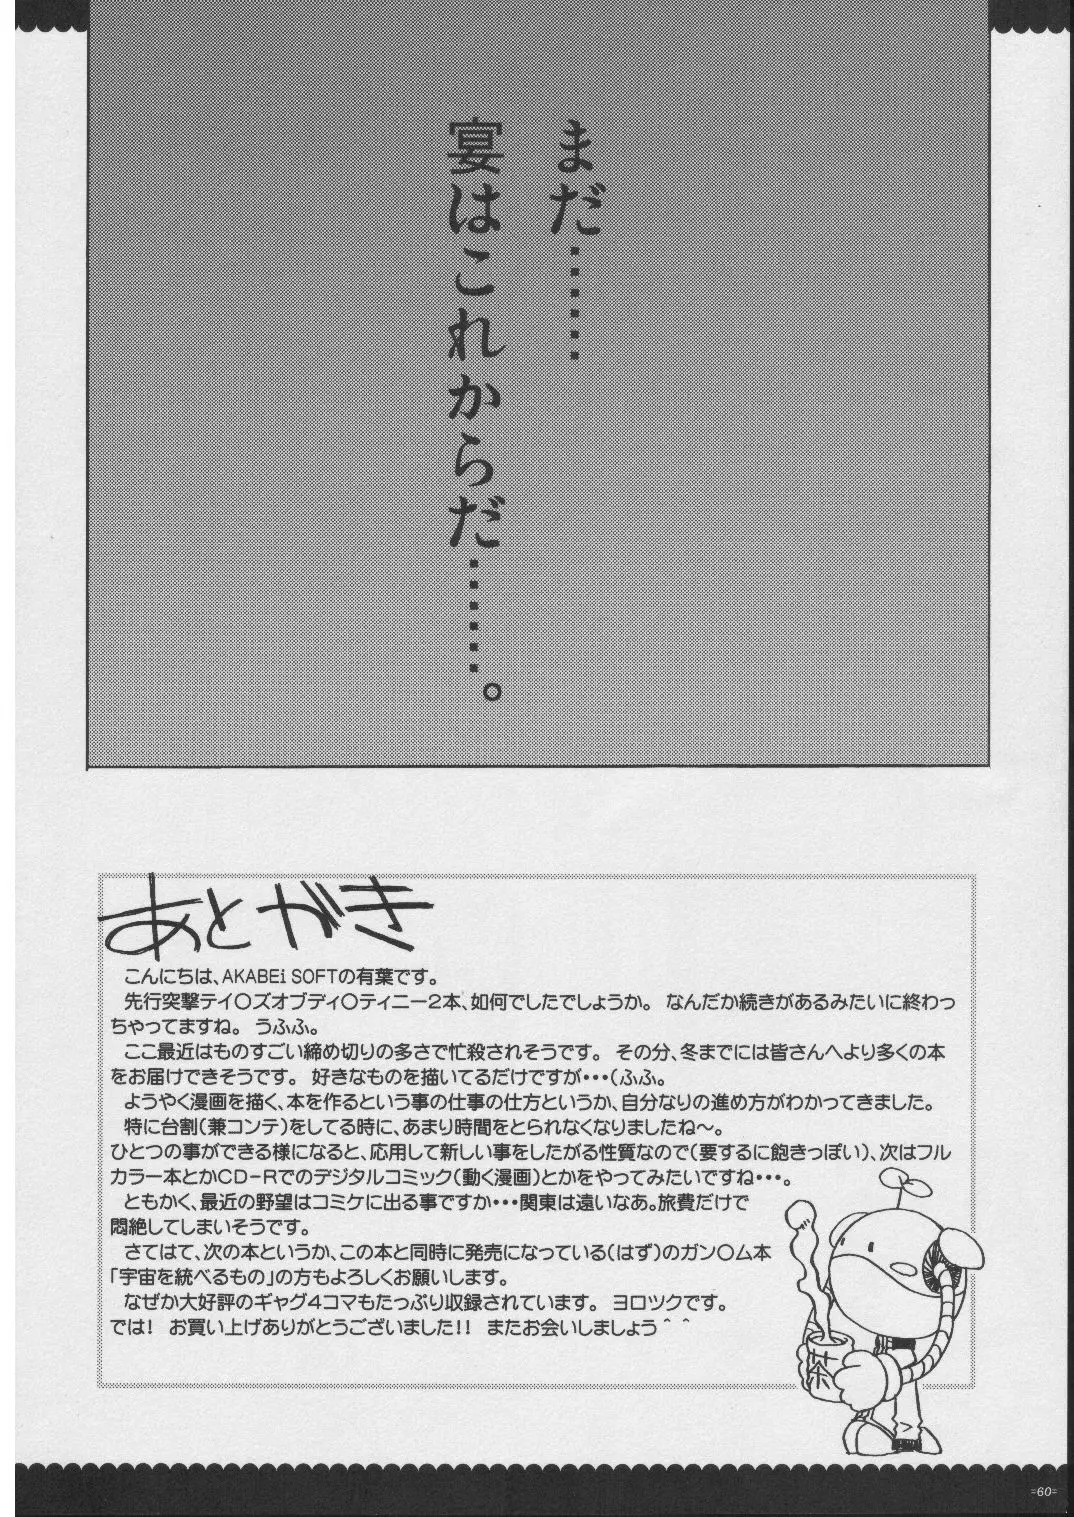 まだ……
宴はこれからだ……。
あとがき
こんにちは、AKABEi SOFTの有葉です。
先行突撃テイ○ズオブディ○ティニー2本、如何でしたでしょうか。 なんだか続きがあるみたいに終わっ
ちゃってますね。 うふふ。
ここ最近はものすごい締め切りの多さで忙殺されそうです。 その分、冬までには皆さんへより多くの本
をお届けできそうです。 好きなものを描いてるだけですが・・・(ふふ。
ようやく漫画を描く、本を作るという事の仕事の仕方というか、自分なりの進め方がわかってきました。
特に台割(兼コンテ)をしてる時に、あまり時間をとられなくなりましたね〜。
ひとつの事ができる様になると、応用して新しい事をしたがる性質なので(要するに飽きっぽい)、次はフル
カラー本とかCD-Rでのデジタルコミック(動く漫画)とかをやってみたいですね・・・。
ともかく、最近の野望はコミケに出る事ですか・・・関東は遠いなあ。旅費だけで
悶絶してしまいそうです。
さてはて、次の本というか、この本と同時に発売になっている(はず)のガン○ム本
「宇宙を統べるもの」の方もよろしくお願いします。
なぜか大好評のギャグ4コマもたっぷり収録されています。 ヨロツクです。
では! お買い上げありがとうございました!! またお会いしましょう＾＾
茶
=60=